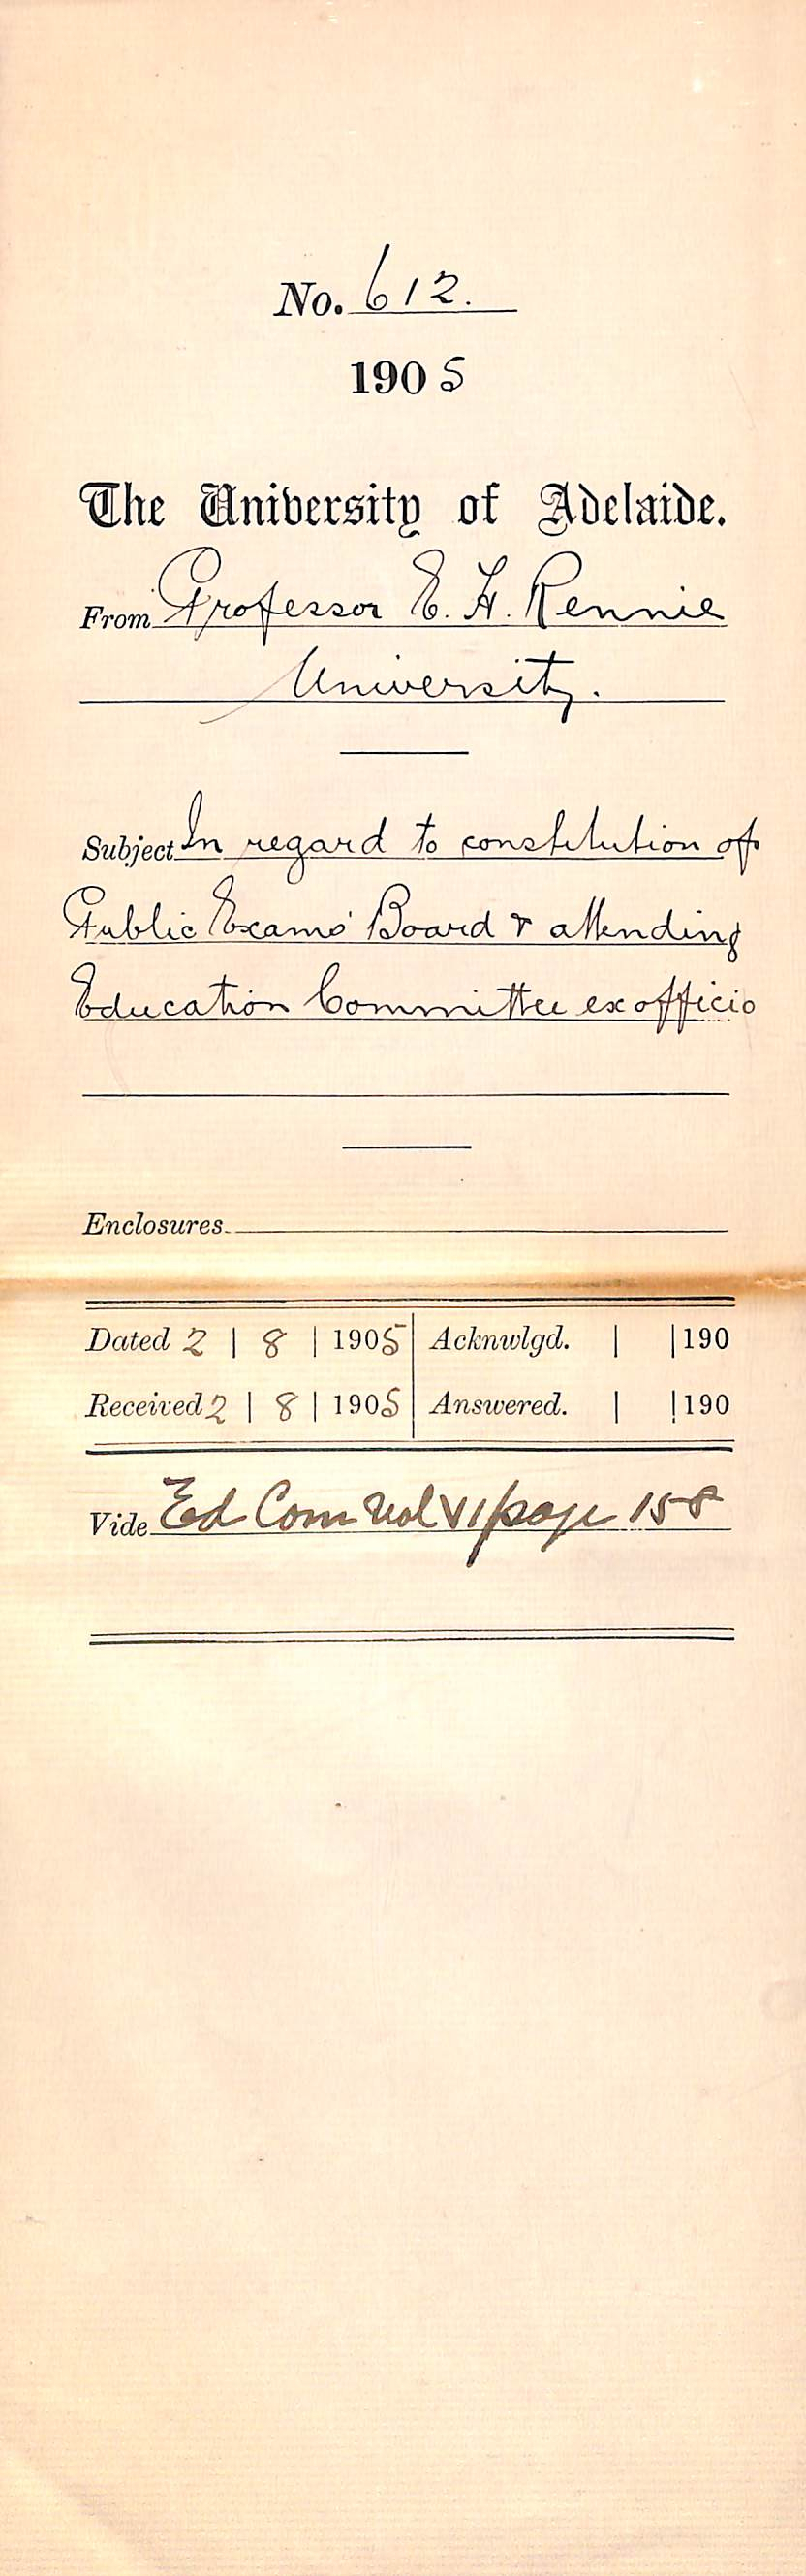 No. 612.
1905
The University of Adelaide.
From Professor E. H. Rennie
University.
Subject In regard to constitution of
Public Exams' Board & attending
Education Committee ex officio
Enclosures
Dated 2 | 8 | 1905 Acknwlgd. | | 190
Received 2 | 8 | 1905 Answered. | | 190
Vide Ed Com Vol VI page 158